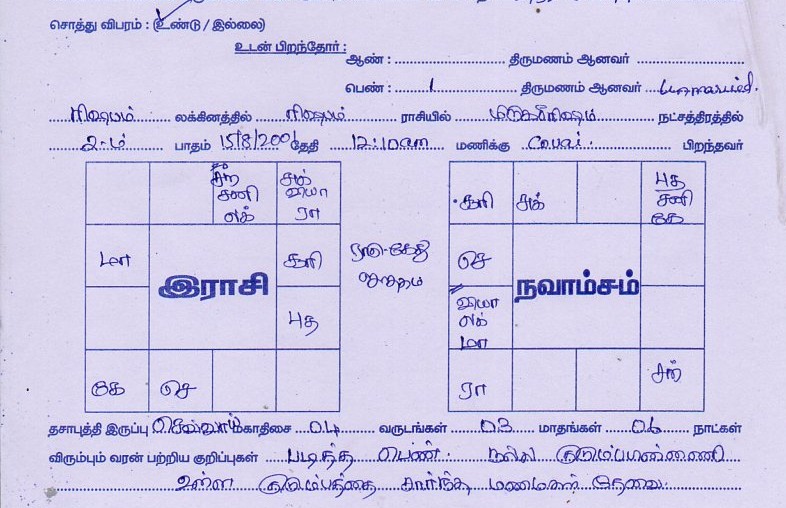 சொத்து விபரம் : (உண்டு / இல்லை)
உடன் பிறந்தோர் :
ஆண் : திருமணம் ஆனவர்
பெண் : 1 திருமணம் ஆனவர் Unmarried.
ரிஷபம் லக்கினத்தில் ரிஷபம் ராசியில் மிருகசீரிஷம் நட்சத்திரத்தில்
2-ம் பாதம் 15/8/2001 தேதி 12:10am மணிக்கு கோவை. பிறந்தவர்
சந் சனி லக் சுக் வியா ரா
மா சூரி
புத
கே செ
இராசி
ராகு-கேது ஜாதகம்
சூரி சுக் புத சனி கே
செ
வியா லக் மா
ரா சந்
நவாம்சம்
தசாபுத்தி இருப்பு செவ்வாய் மகாதிசை 04 வருடங்கள் 03 மாதங்கள் 06 நாட்கள்
விரும்பும் வரன் பற்றிய குறிப்புகள் படித்த பெண். நல்ல
உள்ள குடும்பத்தை சார்ந்த மணமகள் தேவை.